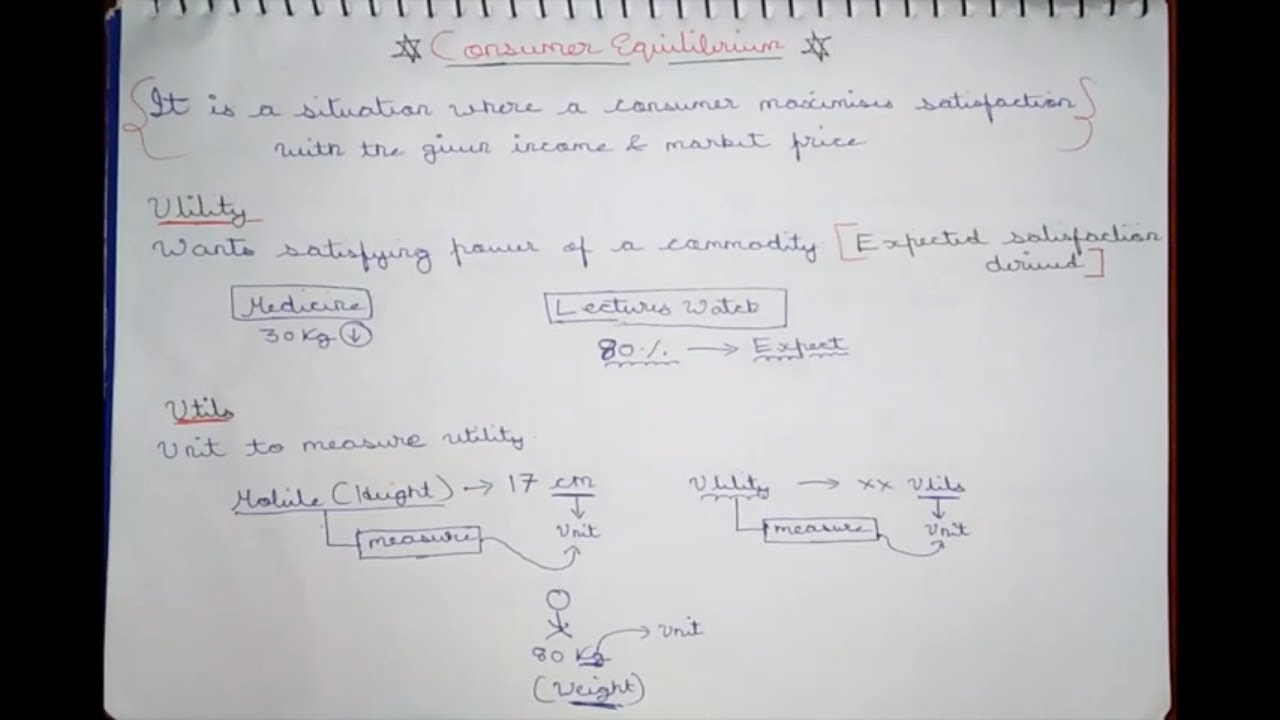 Consumer Equilibrium
It is a situation where a consumer maximises satisfaction
with the given income & market price
Utility
Wants satisfying power of a commodity [Expected satisfaction
derived]
Medicine
30 Kg ↓
Lectures Watch
80% → Expect
Utils
Unit to measure utility
Mobile (Height) → 17 cm
measure
Unit
Utility → xx Utils
measure
Unit
80 Kg → Unit
(Weight)